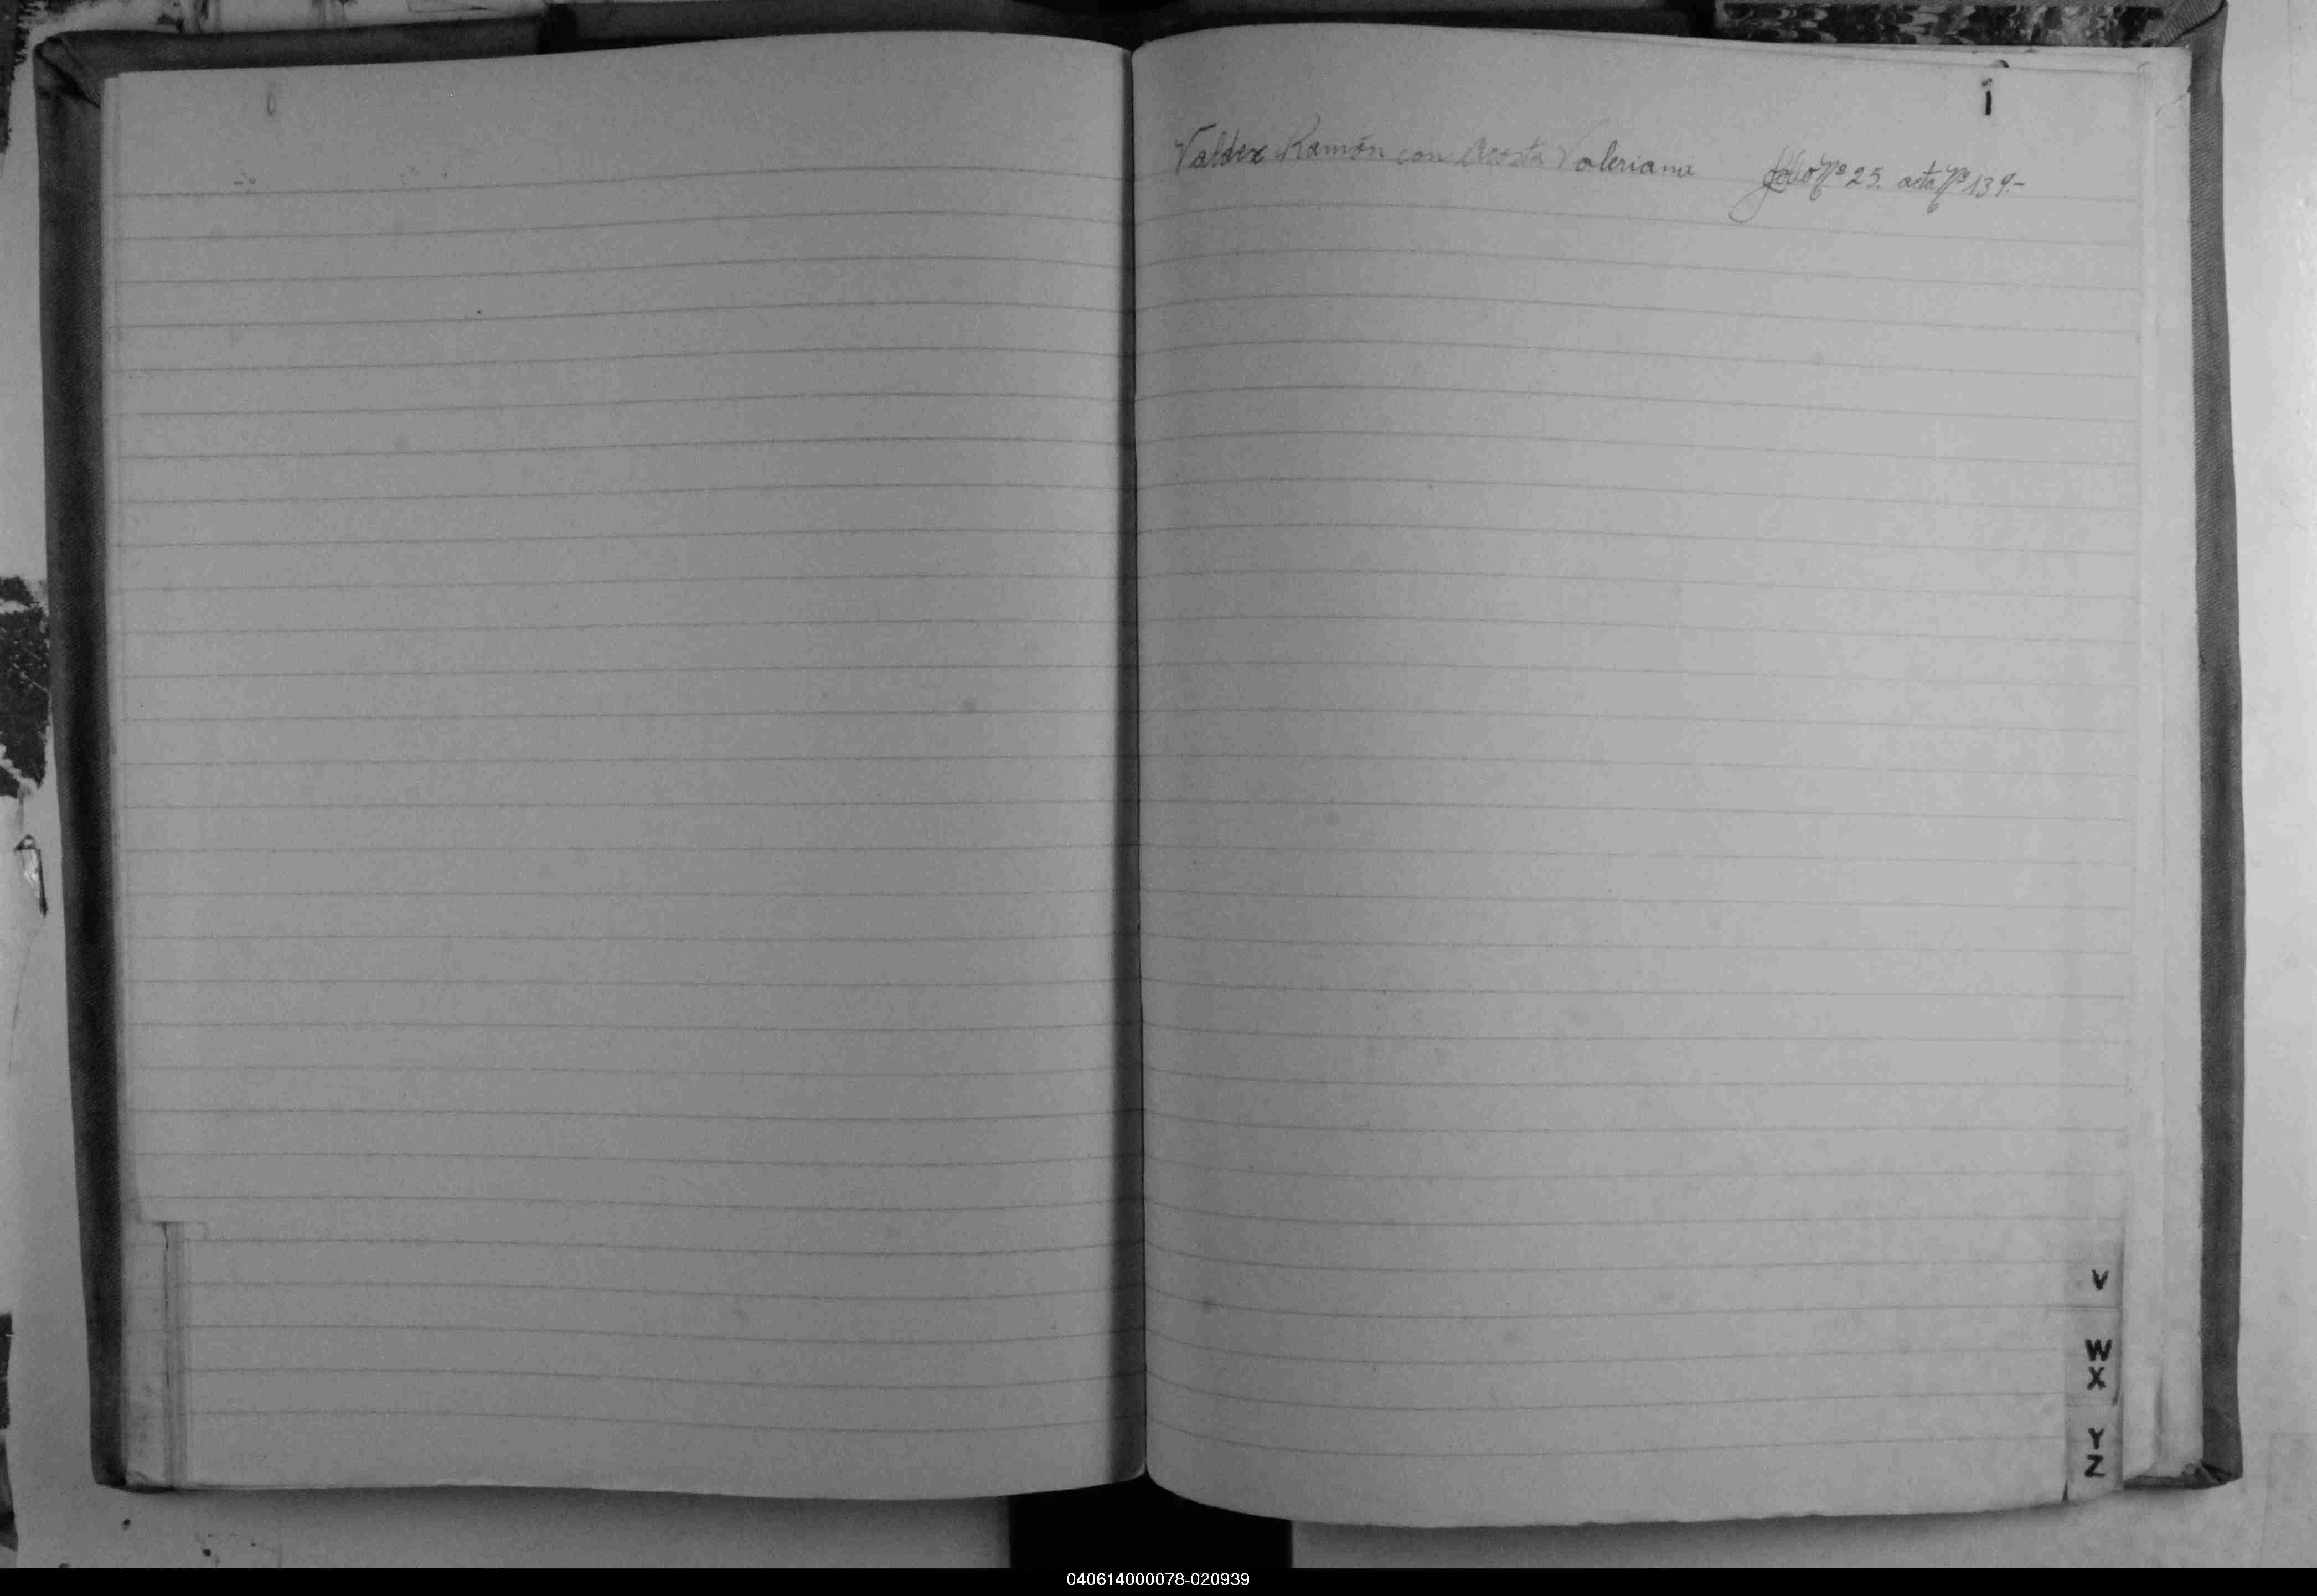 Valdez Ramón con Acosta Valeriana folio Nº 25. acta Nº 139.-
V
W
X
Y
Z
040614000078-020939